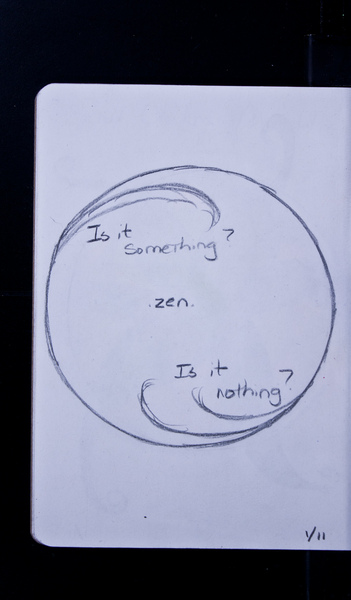 Is it
something?
.zen.
Is it
nothing?
1/11